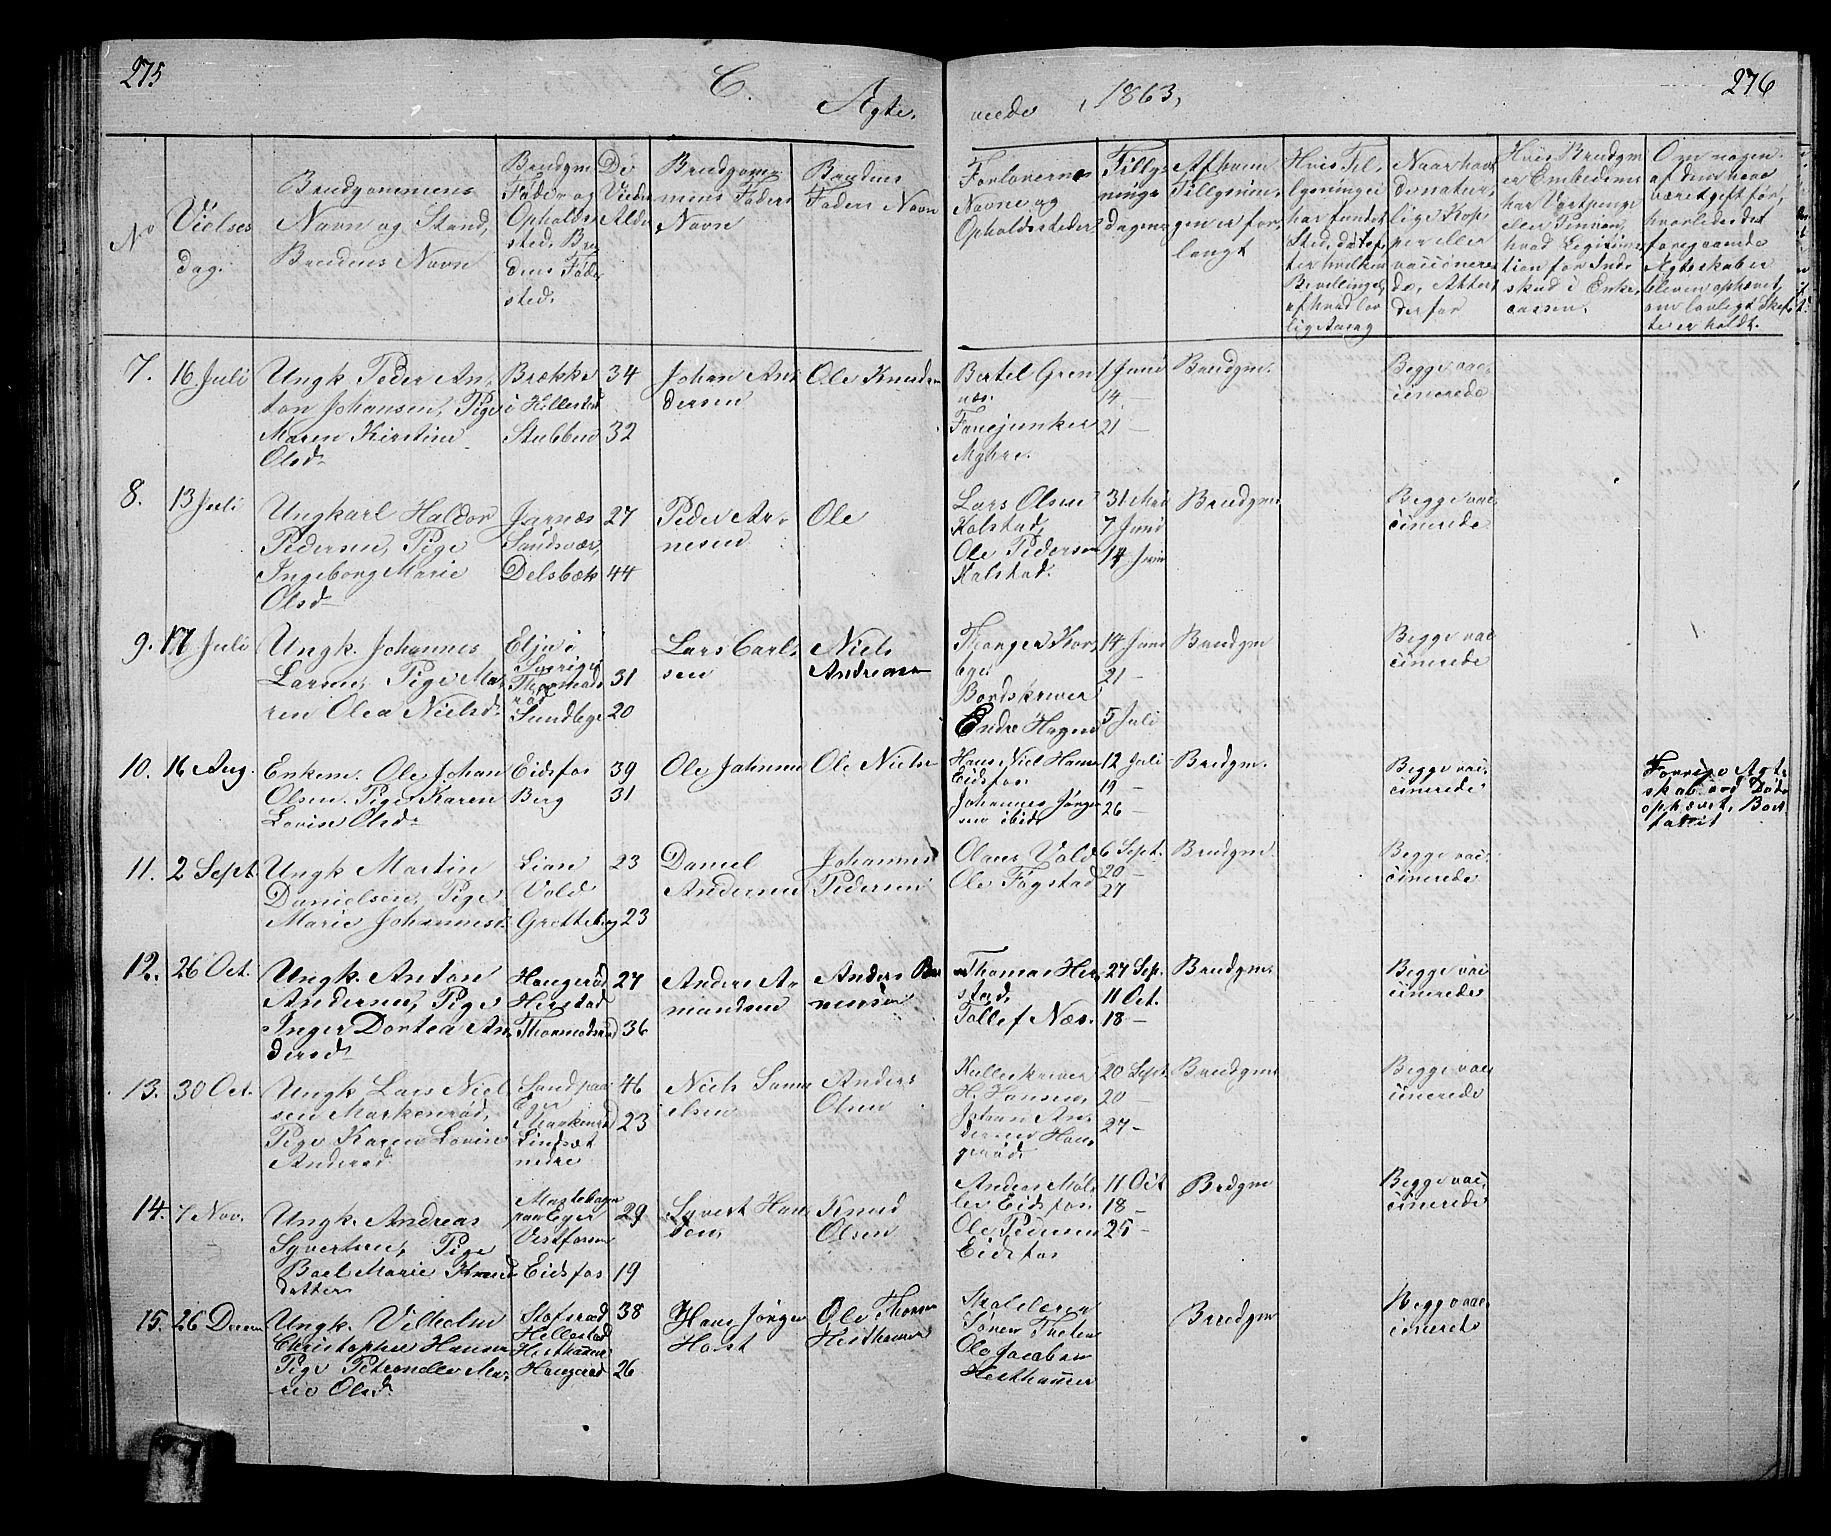 275
C.
Ægte,
viede
1863,
276
No
Vielses
dag.
Brudgommens
Navn og Stand,
Brudens Navn
Brudgm
Føde og
Opholds
sted, Bru
dens Føde
sted.
De
Viedes
Alder
Brudgom
mens Faders
Navn
Brudens
Faders Navn
Forlovernes
Navne og
Opholdssteder
Tillys
nings
dagene
Af hvem
Tillysnin,
gen er for,
langt
Hvis Til,
lysning ei
har fundet
Sted, da ef
ter hvilken
Bevilling el,
af hvad lov
lig Aarsag
Naar havt
de natur,
lige Kop
per eller
vaccinere
de, Attest
derfor
Hvis Brudgm
er Embedsm
har Vartpenge
eller Pension,
hvad Legitima
tion for Ind
skud i Enke,
cassen.
Om nogen
af dem have
været gift før,
hvorledes det
foregaaende
Ægteskab er
bleven ophævet,
om lovligt Skif
te er holdt.
7. 16 Juli
Ungk. Peder An,
ton Johansen, Pige
Maren Kirstine
Olsd
Brække
i Hillestad
Stubben
34
32
Johan An
dersen
Ole Knudsen
Bertel Gren
næs.
Fanejunker
Myhre.
7 Juni
14 —
21 —
Brudgm.
Begge vac,
cinerede
8. 13 Juli
Ungkarl Haldor
Pedersen, Pige
Ingeborg Marie
Olsd
Jarnæs
Sandsvær,
Delsbæk
27
44
Peder Ar,
nesen
Ole
Lars Olsen
Kolstad,
Ole Pedersen
Kalstad.
31 Mai
7 Juni
14 Juni
Brudgm
Begge vac,
cinerede
9. 17 Juli
Ungk. Johannes
Larsen, Pige Ma
ren Olea Nielsd.
Elja i
Sverige
Thormods
rød
Sundbye
31
20
Lars Carl,
sen
Niels
Andreasen
Thorger Kors
bye
Bordskriver
Endre Hagen
14 Juni
21 —
5 Juli
Brudgm
Begge vac
cinerede
10. 16 Aug.
Enkem. Ole Johan
Olsen. Pige Karen
Lovise Olsd.
Eidsfos
Berg
39
31
Ole Johnsen
Ole Nielsen
Hans Niel Hansen
Eidsfos.
Johannes Jørgen
sen ibid.
12 Juli
19 —
26 —
Brudgm.
Begge vac,
cinerede
Forrige Ægte
skab ved Død
ophævet,
11. 2 Sept.
Ungk Martin
Danielsen, Pige
Marie Johannesd.
Lian
Vold
Gretteberg
23
23
Daniel
Andersen
Johannes
Pedersen
Olaus Vold
Ole Fogstad
6 Sept.
20 —
27
Brudgm.
Begge vac,
cinerede
12. 26 Oct.
Ungk. Anton
Andersen, Pige
Inger Dortea An
dersd
Haugerød
Herstad
Thormodsrød
27
36
Anders A,
mundsen
Anders
Thomas Her
stad,
Tollef Næs.
27 Sep.
11 Oct.
18 —
Brudgm.
Begge vac
cinerede
13. 30 Oct.
Ungk Lars Niel
sen Markenrød,
Pige Karen Lovise
Andersd
Sand paa
Eger
Markenrød
Lindsæt
nedre
46
23
Niels Samu
elsen
Anders
Olsen
Kullerkriver
H. Hansen,
Johan An,
dersen Hau,
gerød.
20 Sept.
20 —
27 —
Brudgm
Begge vac
cinerede
14. 7 Nov.
Ungk. Andreas
Syvertsen, Pige
Boel Marie Knuds
datter
paa Eger
Vestfossen
Eidsfos
29
19
Syvert Han
sen,
Knud
Olsen
Anders Møl,
ler Eidsfos.
Ole Pedersen
Eidsfos
11 Oct
18 —
25 —
Brdgm
Begge vac,
cinerede
15. 26 Decem
Ungk. Vilhelm
Christopher Hansen
Pige Petronelle Ma,
rie Olsd.
Stofsrød
Hillestad
Hesthammer
Haugerød
38
26
Hans Jørgen
Horst
Ole Thorsen
Hesthammer
Skolelærer
Sören Theten
Ole Jacobsen
Hesthammer
Brudgm
Begge vac,
cinerede